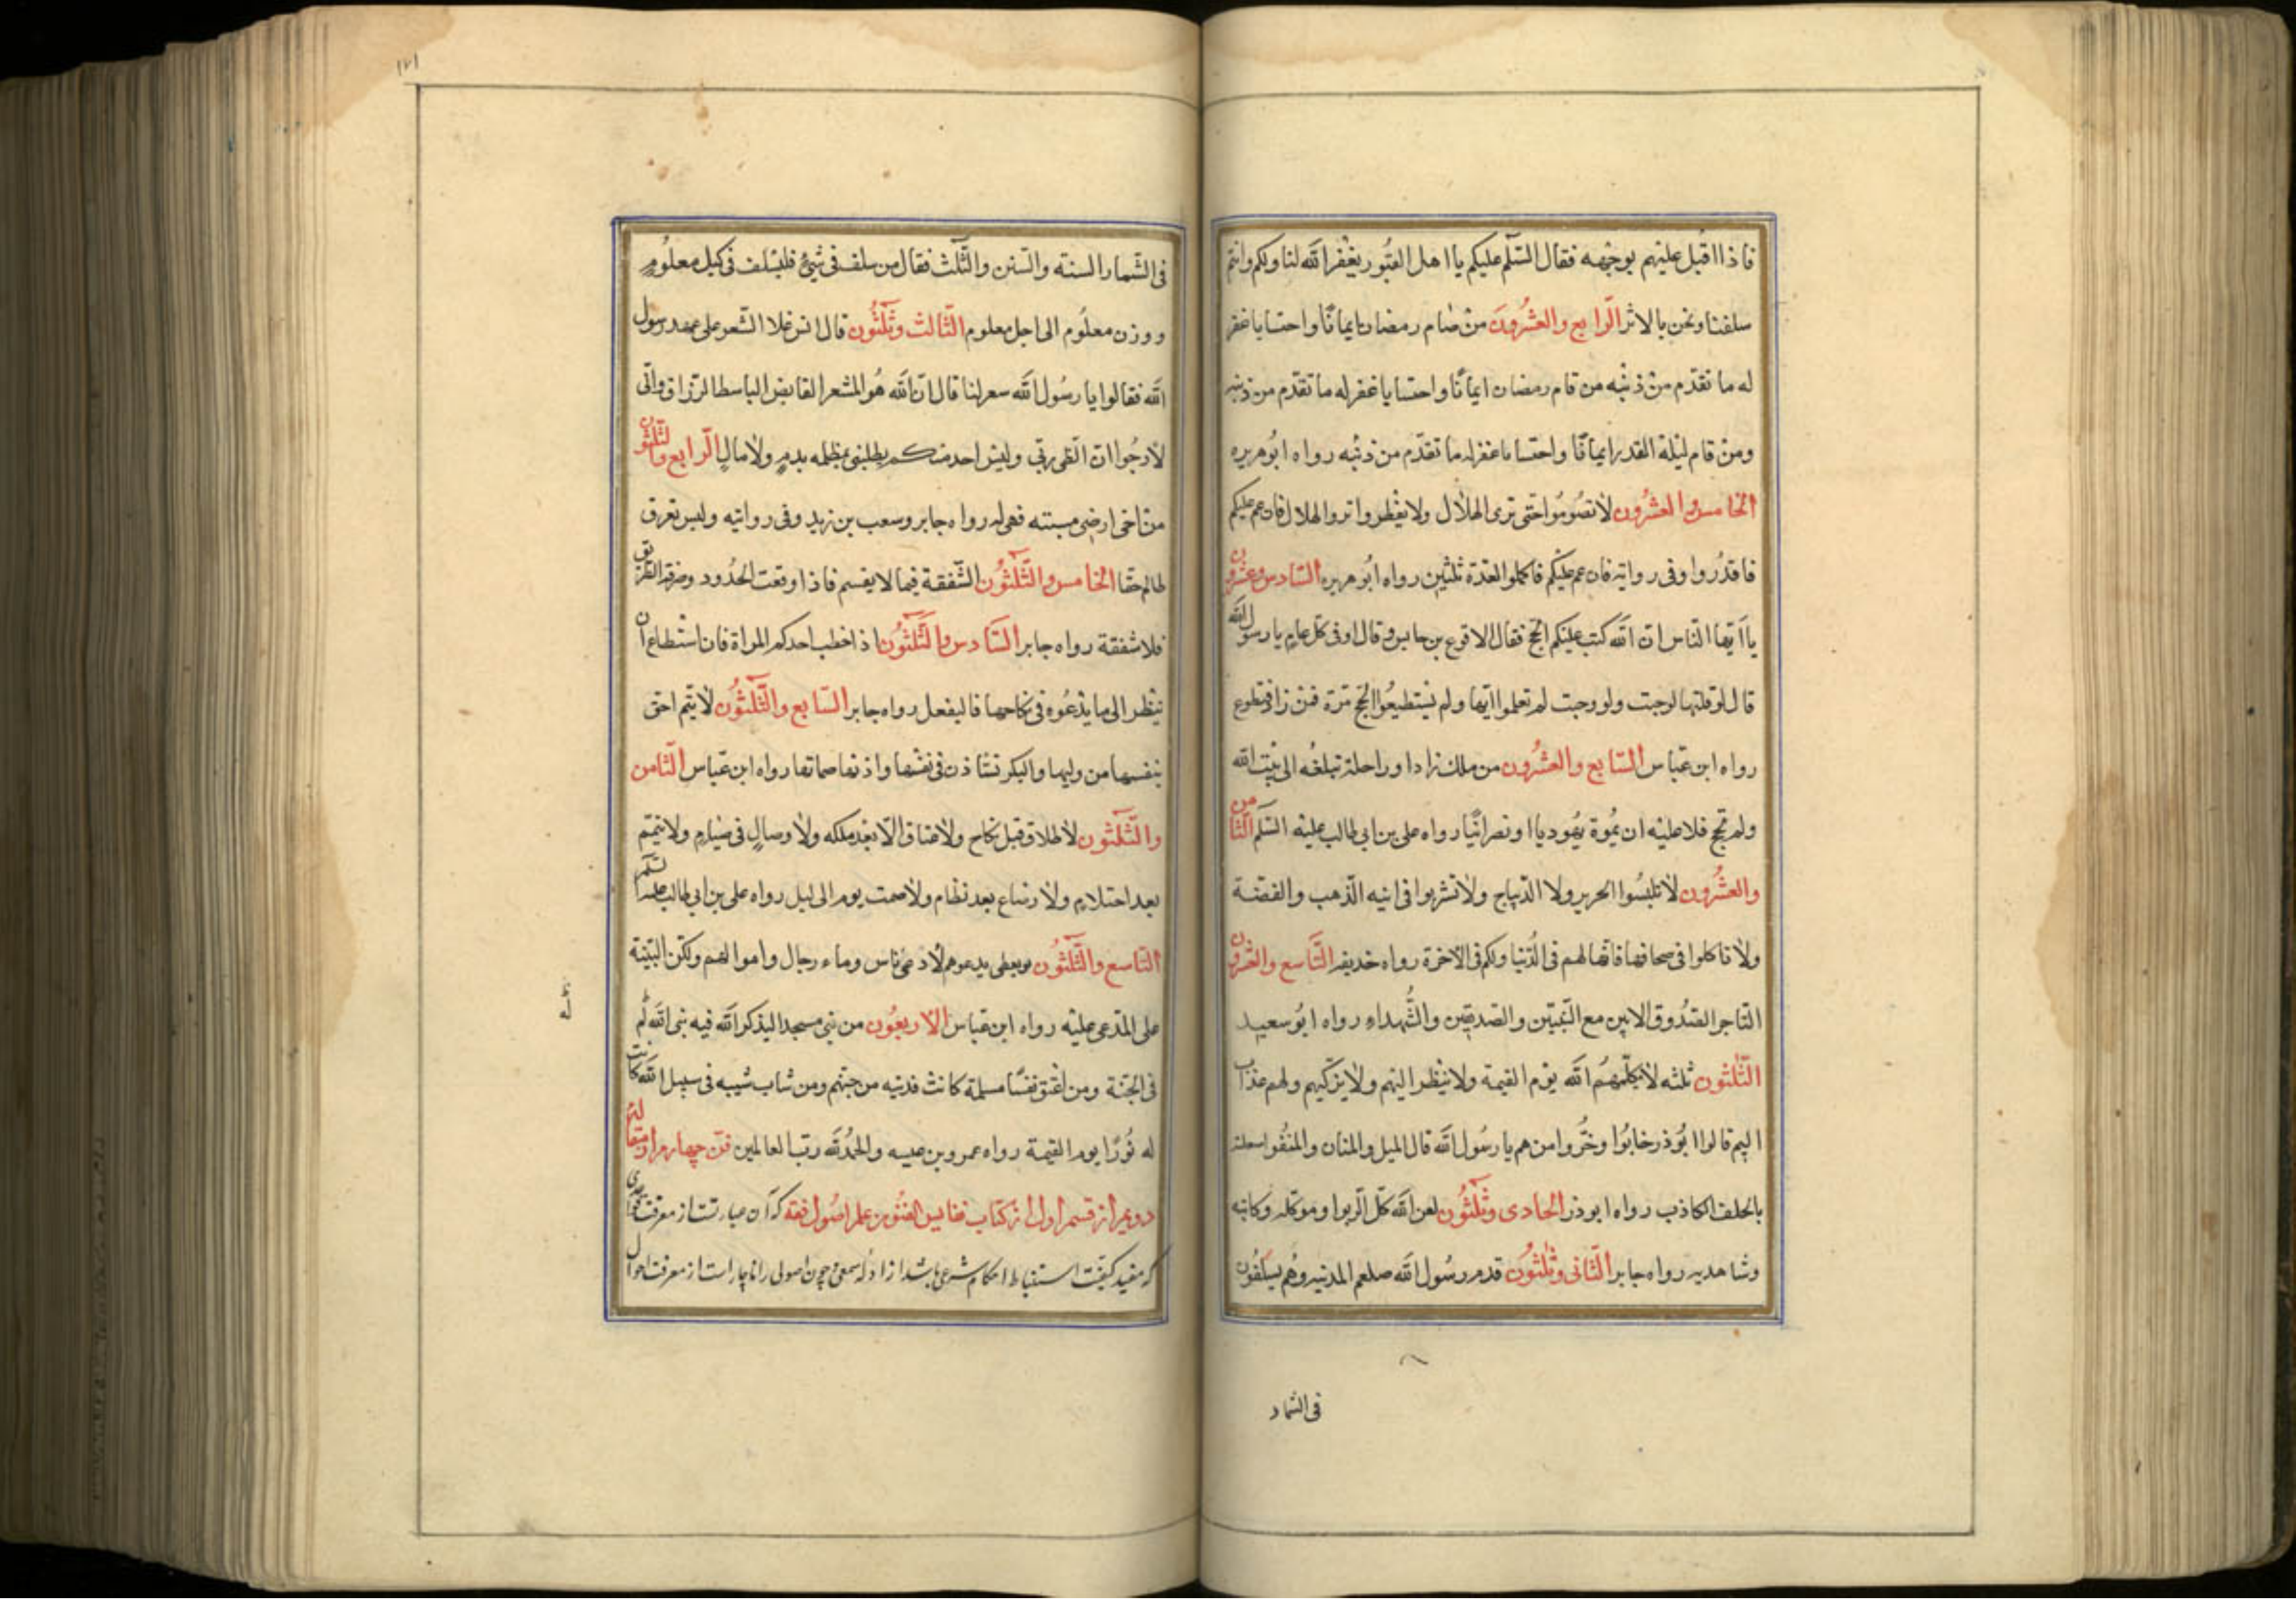 فاذا اقبل عليهم بوجهه فقال السّلم عليكم يا اهل القبور يغفر الله لنا ولكم وانتم
سلفنا ونحن بالاثر الرّابع والعشرُونَ منْ صام رمضان ايمانًا واحتسابا غفر
له ما تقدّم منْ ذنبه من قام رمضان ايمانًا واحتسابا غفر له ما تقدّم من ذنبه
ومنْ قام ليْلة القدر ايمانًا واحتسابا غفر له ما تقدّم من ذنبه رواه ابُو هريره
الخامس والعشرُون لا تصُومُوا حتى ترى الهلال ولا تفطروا تروا الهلال فان غم عليكم
فاقدُروا وفى روايته فان غم عليْكم فاكملوا العدّة ثلثين رواه ابُو هريره السّادس وعشرون
يا اَيّها النّاس انّ الله كتب عليْكم الحج فقال الاقوع بن حابس وقال اوفى كل عام يا رسول الله
قال لو قلتها لوجبت ولو وجبت لم تعلموا ايّها ولم يستطيعُوا الحج مّرة فمن زاد فتطوع
رواه ابن عبّاس السّابع والعشرُون من ملك زادا وراحلة تبلغُه الى بيْت الله
ولم تحج فلا عليْه ان يمُوة يهُوديا او نصرانيّا رواه على بن ابى طالب عليْه السّلم الثّامن
والعشرُون لا تلبسُوا الحرير ولا الدّيباج ولا تشربوا فى انيه الذّهب والفضّة
ولا تاكلوا فى صحافها فانّها لهم فى الدُّنيا ولكم فى الآخرة رواه خديفه التّاسع والعشرون
التّاجر الصدُوق الامين مع النّبيّن والصديقين والشُّهداءِ رواه ابوُ سعيد
الثّلثون ثلثه لا يكلّمهُم الله يوْم القيمة ولا ينْظر اليْهم ولا يزكيهم ولهم عذاب
اليم قالوا ابُو ذر خابوُا وخسُّروا من هم يا رسُول الله قال الميل والمنان والمنفُو سعلته
بالحلف الكاذب رواه ابو ذر الحادى وثلثُون لعن الله كلّ الّربوا وموكله وكاتبه
وشاهديه رواه جابر الثّانى وثلثُون قدم رسُول الله صلعم المدينه وهُم يسلفُون
فى الثمار
١٧١
فى الثّمار السنته والسّنن والثّلث فقال من سلف فى شيْئ فليسْلف فى كيل معلُومٍ
ووزن معلُوم الى اجل معلوم الثّالث وثلثُون قال انس غلا السّعر على عهد رسول
الله فقالوا يا رسُول الله سعر لنا قال انّ الله هُو المشعر القابض الباسط الرّزاق وانّى
لاَرجُوا ان القى ربّى وليْس احد منكم يطلبنى بمظلمه بدمٍ ولا مالٍ الرّابع والثلثون
منْ اخى ارضٍى مييته فهى له رواه جابر وسعب بن زيد وفى روايته وليس تعرق
ظالم حقا الخامس والثّلثُون الشّفقة فيما لا يقسم فاذا وقعت الحدُود وصرفة الطّريق
فلا شفقة رواه جابر السّادس والثّلثُون اذ اخطب احدكم المراة فان استْطاع ان
ينظر الى ما يدْعُوه فى نكاحها فاليفعل رواه جابر السّابع والثّلثُون لا يتّم احق
بنفسها من وليها والبكر تستاذن فى نفسْها واذنها صماتها رواه ابن عبّاس الثّامن
والثّلثون لا طلاق قبل نكاح ولا عتاق الّا بعْد ملكه ولا وصالٍ فى صيامٍ ولا يتمّم
بعد احتلامٍ ولا رضاع بعد نظام ولا صمت يوم الى ليل رواه على بن ابى طالب عليه السّلم
التّاسع والثّلثُون لو يعطى بدعوهم لادعى ناس وماء رجال واموالهم ولكن البيّنة
على المدّعى عليْه رواه ابن عبّاس الاربعُون من بنى مسجدا ليذكر الله فيه بنى الله لم
فى الجنّة ومن اعْتق نفسًا مسلمة كانث فديته من جهنّم ومن شاب شيبه فى سبيل الله كانت
له نُورًا يوم القيمة رواه عمرو بن عبسه والحمْدُ لله ربّ العالمين فنّ چهارم از مقاله
دويم از قسم اول از كتاب نفايس الفنُون علم اصُول فقه كه آن عبارتست از معرفت قواعدى
كه مفيد كيفيّت استنباط احكام شرعى باشد از ادلّه سمعى وچون اصولى را ناچار است از معرفت احوال